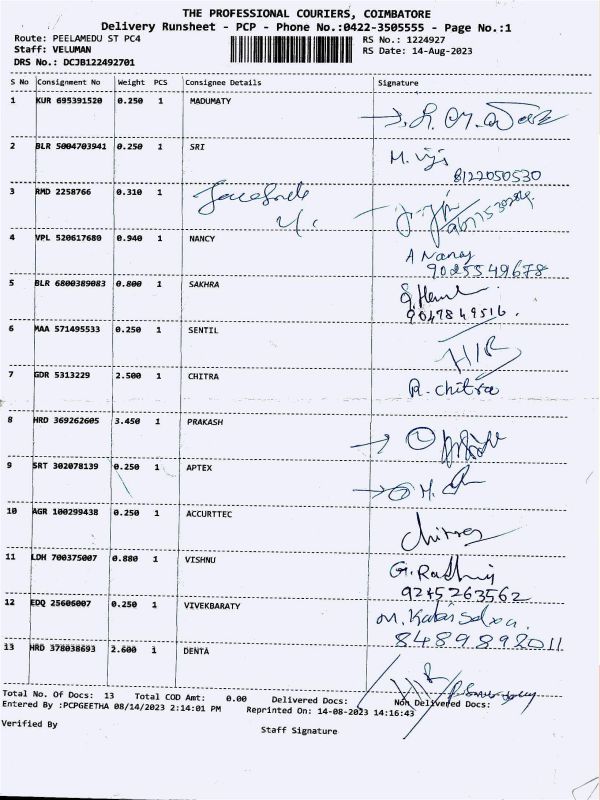 THE PROFESSIONAL COURIERS, COIMBATORE
Delivery Runsheet - PCP - Phone No.:0422-3505555 - Page No.:1
Route: PEELAMEDU ST PC4 RS No.: 1224927
Staff: VELUMAN RS Date: 14-Aug-2023
DRS No.: DCJB122492701
S No Consignment No Weight PCS Consignee Details Signature
1 KUR 695391520 0.250 1 MADUMATY
2 BLR 5004703941 0.250 1 SRI M. Viji
8122050530
3 RMD 2258766 0.310 1
4 VPL 520617680 0.940 1 NANCY A Nancy
9025549678
5 BLR 6800389083 0.800 1 SAKHRA
9047849516.
6 MAA 571495533 0.250 1 SENTIL H/R
7 GDR 5313229 2.500 1 CHITRA R. chitra
8 HRD 369262605 3.450 1 PRAKASH
9 SRT 302078139 0.250 1 APTEX
10 AGR 100299438 0.250 1 ACCURTTEC
11 LDH 700375007 0.880 1 VISHNU G.
9245263562
12 EDQ 25606007 0.250 1 VIVEKBARATY M.
8489892011
13 HRD 378038693 2.600 1 DENTA
Total No. Of Docs: 13 Total COD Amt: 0.00 Delivered Docs: Non Delivered Docs:
Entered By :PCPGEETHA 08/14/2023 2:14:01 PM Reprinted On: 14-08-2023 14:16:43
Verified By Staff Signature